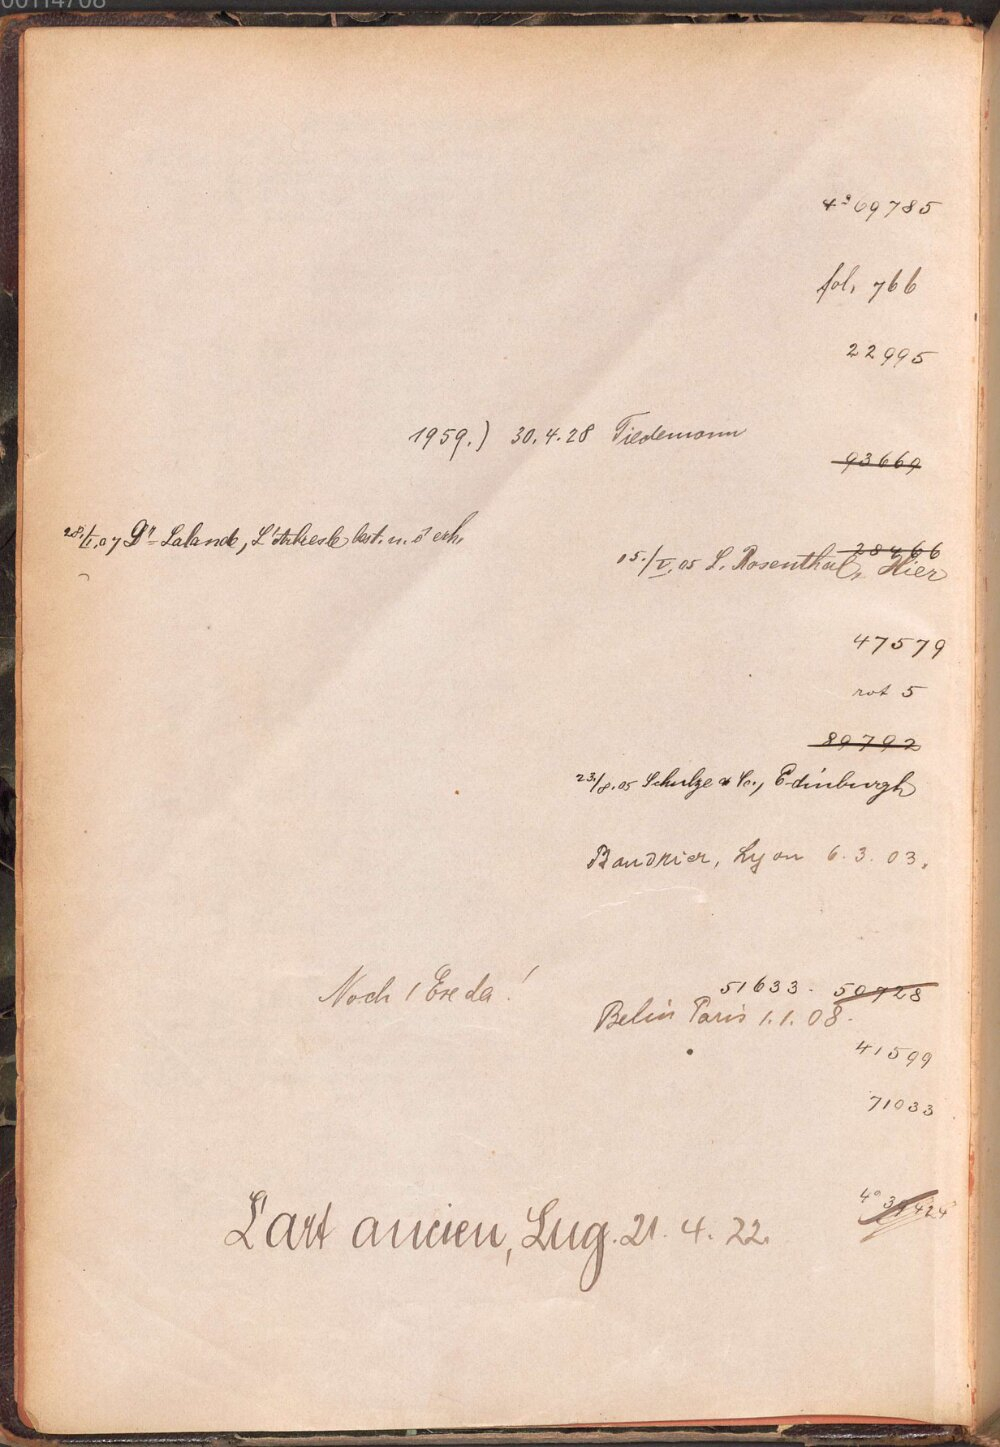 00114708
4° 69785
fol. 766
22995
1959.) 30.4.28 Tiedemann
93669
28./I.07 Dr. Lalande, L'Arbresle best. u.
28466
15./V.05 L. Rosenthal, Hier
47579
rot 5
89792
23./8.05 Schulze & Co., Edinburgh
Baudrier, Lyon 6.3.03.
51633. 50728
Noch 1 Ex. da!
Belin Paris 1.1.08.
41599
71033
4°
L'art ancien, Lug. 21.4.22.